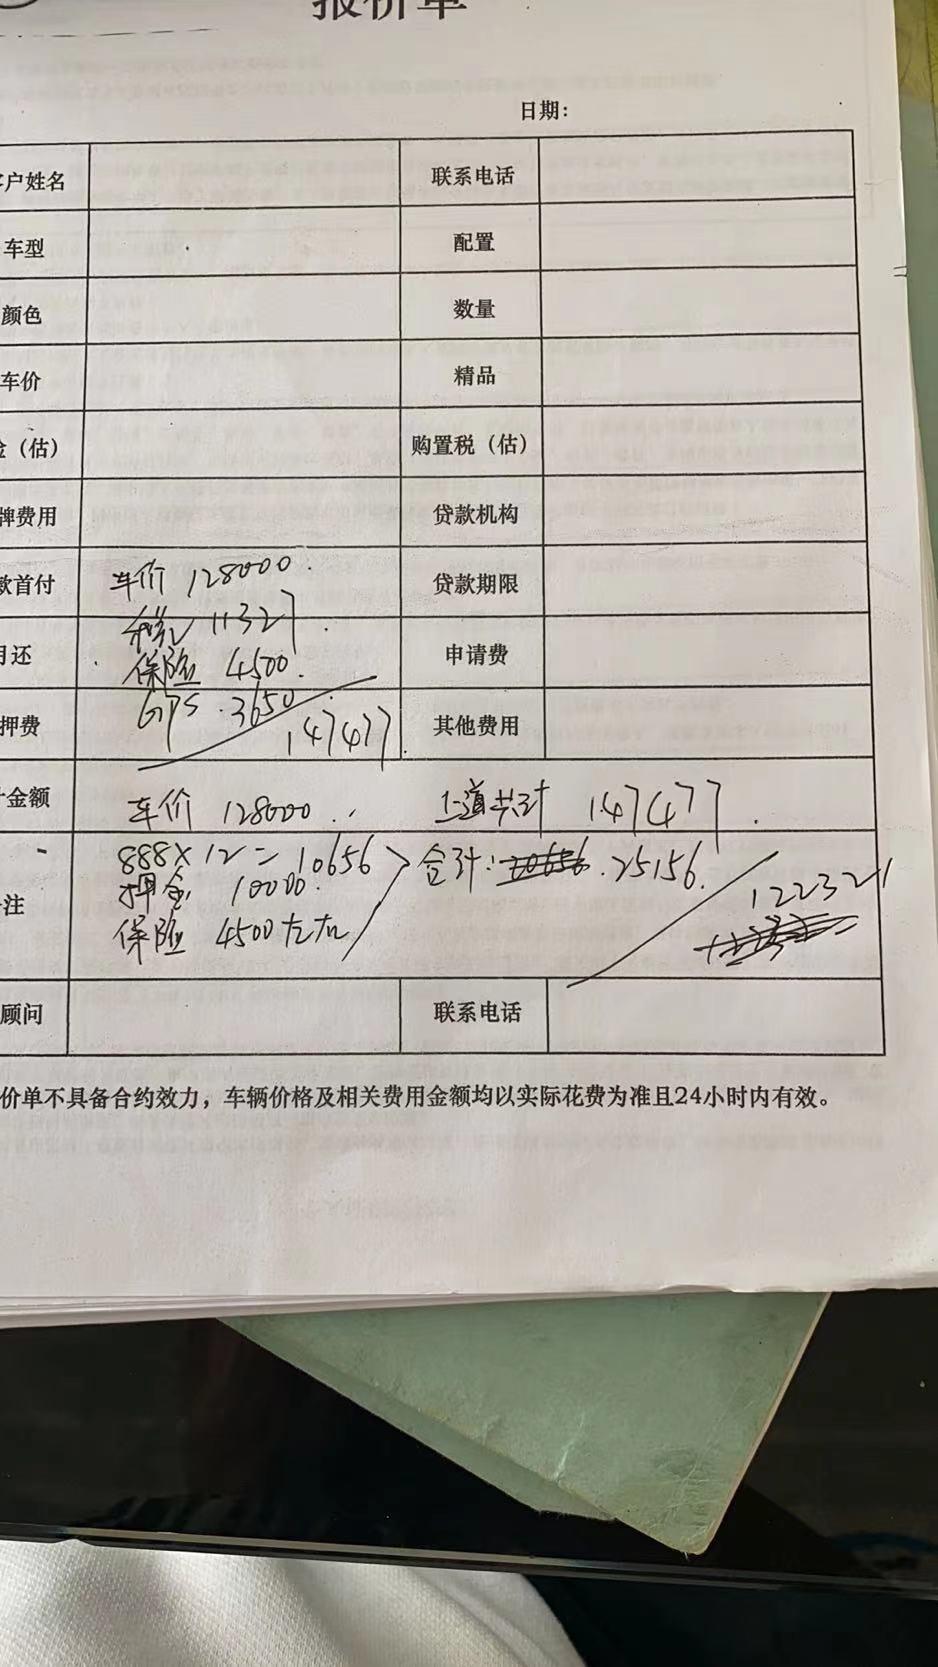 报价单
日期：
客户姓名 联系电话
车型 配置
颜色 数量
车价 精品
险（估） 购置税（估）
牌费用 贷款机构
款首付 车价 128000. 贷款期限
税 11327.
月还 保险 4500. 申请费
GPS.3650
押费 147477. 其他费用
计金额 车价 128000.. 上道共计 147477.
888×12=10656 合计: 25156.
注 押金 10000. 122321
保险 4500左右
顾问 联系电话
价单不具备合约效力，车辆价格及相关费用金额均以实际花费为准且24小时内有效。